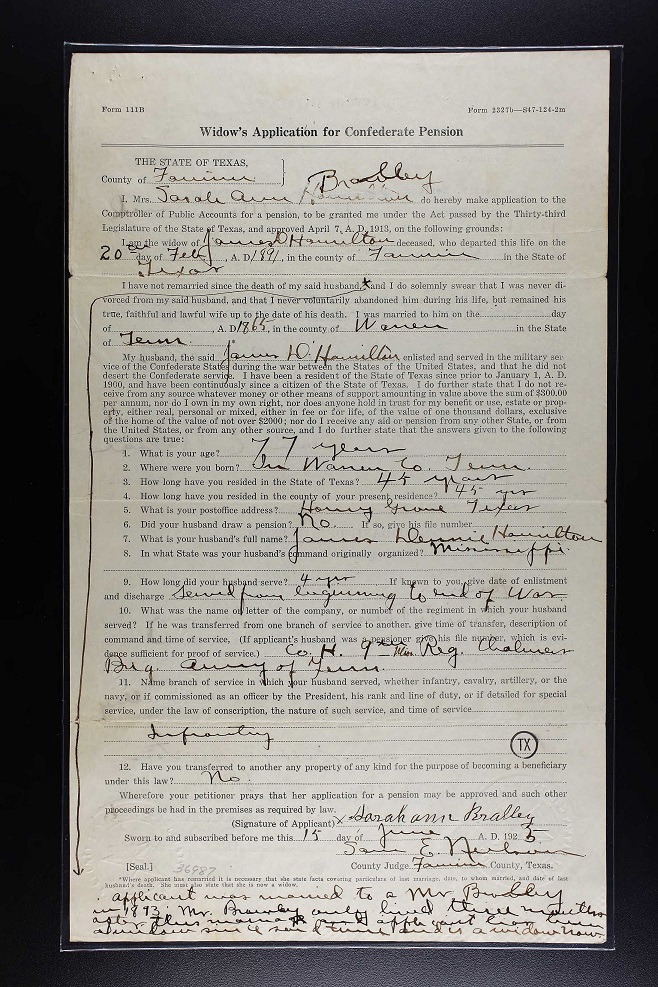 Form 111B Form 2327b—S47-124-2m
Widow's Application for Confederate Pension
THE STATE OF TEXAS,
County of Fannin
Bradley
I, Mrs. Sarah Ann do hereby make application to the
Comptroller of Public Accounts for a pension, to be granted me under the Act passed by the Thirty-third
Legislature of the State of Texas, and approved April 7, A. D. 1913, on the following grounds:
I am the widow of James D Hamilton deceased, who departed this life on the
20 day of Feb, A. D. 1891, in the county of Fannin in the State of
Texas
I have not remarried since the death of my said husband,* and I do solemnly swear that I was never di-
vorced from my said husband, and that I never voluntarily abandoned him during his life, but remained his
true, faithful and lawful wife up to the date of his death. I was married to him on the day
of , A. D. 1865, in the county of Warren in the State
of Tenn.
My husband, the said James D. Hamilton enlisted and served in the military ser-
vice of the Confederate States during the war between the States of the United States, and that he did not
desert the Confederate service. I have been a resident of the State of Texas since prior to January 1, A. D.
1900, and have been continuously since a citizen of the State of Texas. I do further state that I do not re-
ceive from any source whatever money or other means of support amounting in value above the sum of $300.00
per annum, nor do I own in my own right, nor does anyone hold in trust for my benefit or use, estate or prop-
erty, either real, personal or mixed, either in fee or for life, of the value of one thousand dollars, exclusive
of the home of the value of not over $2000; nor do I receive any aid or pension from any other State, or from
the United States, or from any other source, and I do further state that the answers given to the following
questions are true:
1. What is your age? 77 years
2. Where were you born? In Warren Co. Tenn.
3. How long have you resided in the State of Texas? 45 years
4. How long have you resided in the county of your present residence? 45 yrs
5. What is your postoffice address? Honey Grove Texas
6. Did your husband draw a pension? No. If so, give his file number
7. What is your husband's full name? James Dennis Hamilton
8. In what State was your husband's command originally organized? Mississippi.
9. How long did your husband serve? 4 yrs If known to you, give date of enlistment
and discharge Served from beginning to end of War
10. What was the name or letter of the company, or number of the regiment in which your husband
served? If he was transferred from one branch of service to another, give time of transfer, description of
command and time of service, (If applicant's husband was a pensioner give his file number, which is evi-
dence sufficient for proof of service.) Co. H. 9 Miss. Reg. Chalmers
Brig. Army of Tenn.
11. Name branch of service in which your husband served, whether infantry, cavalry, artillery, or the
navy, or if commissioned as an officer by the President, his rank and line of duty, or if detailed for special
service, under the law of conscription, the nature of such service, and time of service
Infrantry
TX
12. Have you transferred to another any property of any kind for the purpose of becoming a beneficiary
under this law? No.
Wherefore your petitioner prays that her application for a pension may be approved and such other
proceedings be had in the premises as required by law.
(Signature of Applicant) x Sarah ann Bradley
Sworn to and subscribed before me this 15 day of June A. D. 1925
Sam E.
[Seal.] 36987 County Judge Fannin County, Texas.
*Where applicant has remarried it is necessary that she state facts covering particulars of last marriage, date, to whom married, and date of last
husband's death. She must also state that she is now a widow.
applicant was married to a Mr Bradley
in 1893. Mr. only lived three months
after this marriage and applicant has been
a widow since said time and is a widow now.